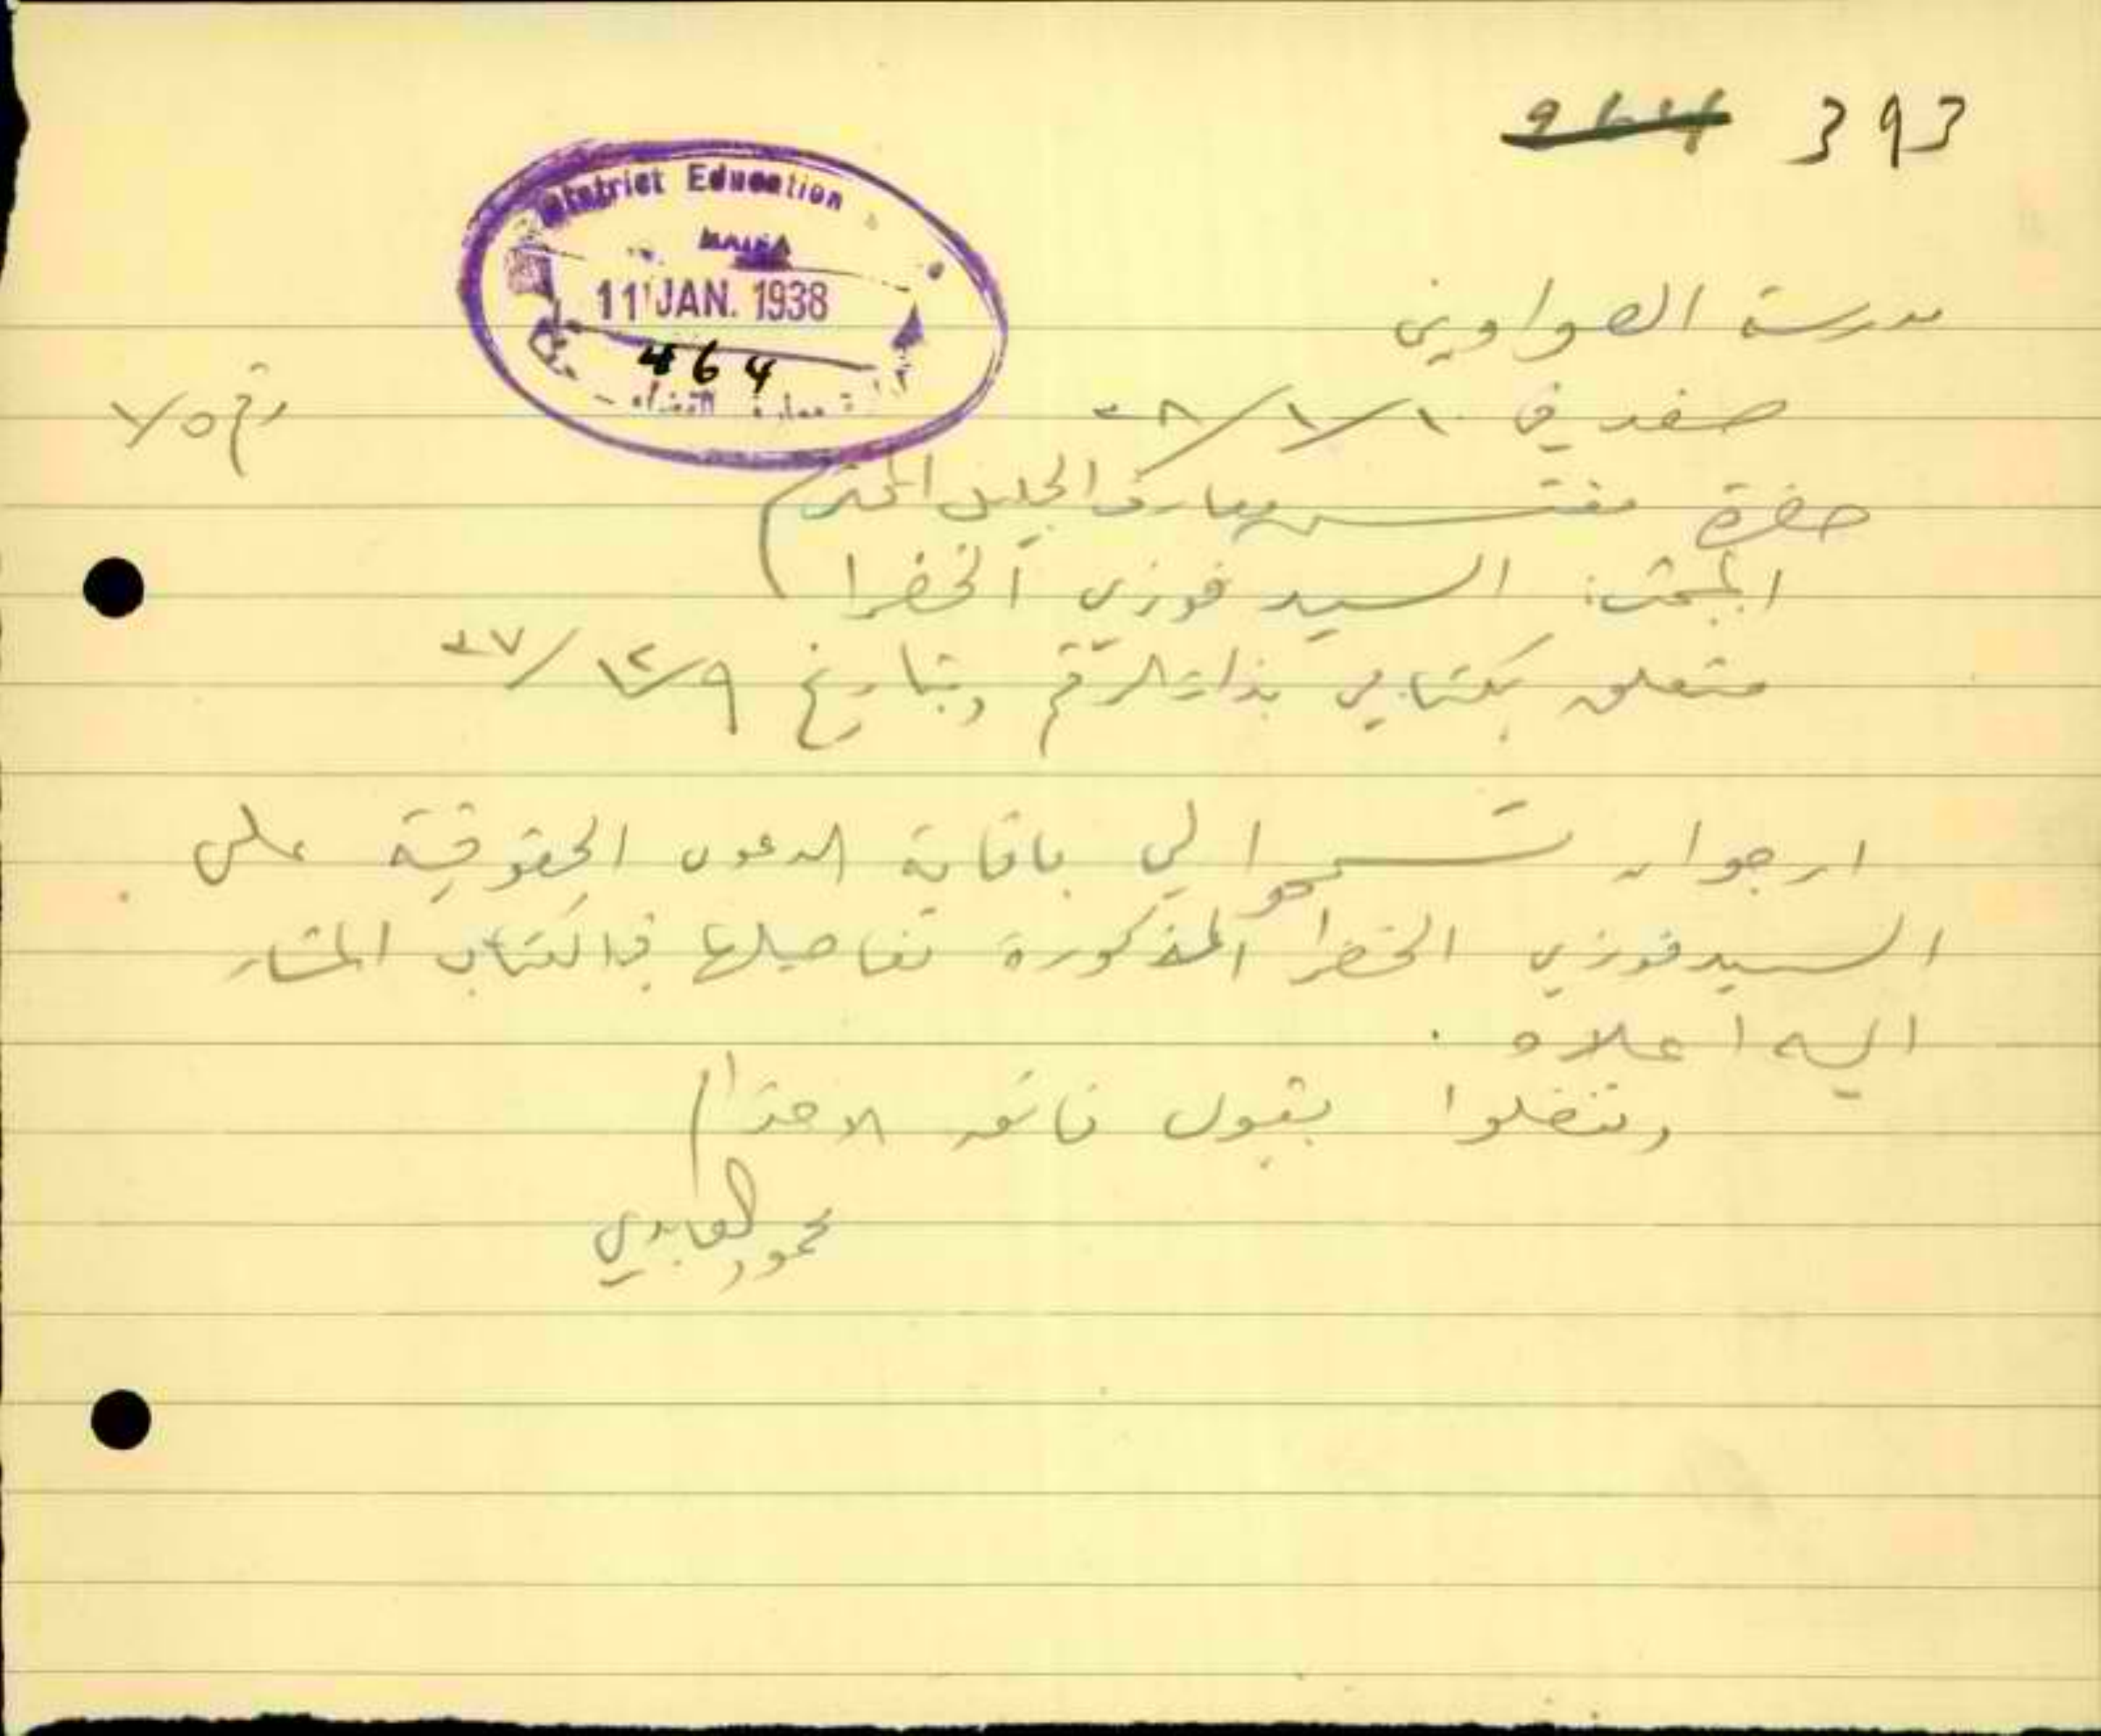 393
District Education
HAIFA
11 JAN. 1938
464
مدرسة الصواوين
صفد في ١٠/١/٣٨
رقم ٧/٥
حضرة مفتش معارف الجليل المحترم
المبحث: السيد فوزي الخضرا
متعلق بكتابي بذات الرقم وبتاريخ ٩/١٢/٣٧
ارجو ان تسمحوا لي باقامة الدعوى الحقوقية على
السيد فوزي الخضرا المذكورة تفاصيلها في الكتاب المشار
اليه اعلاه .
وتفضلوا بقبول فائق الاحترام
محمود العابدي